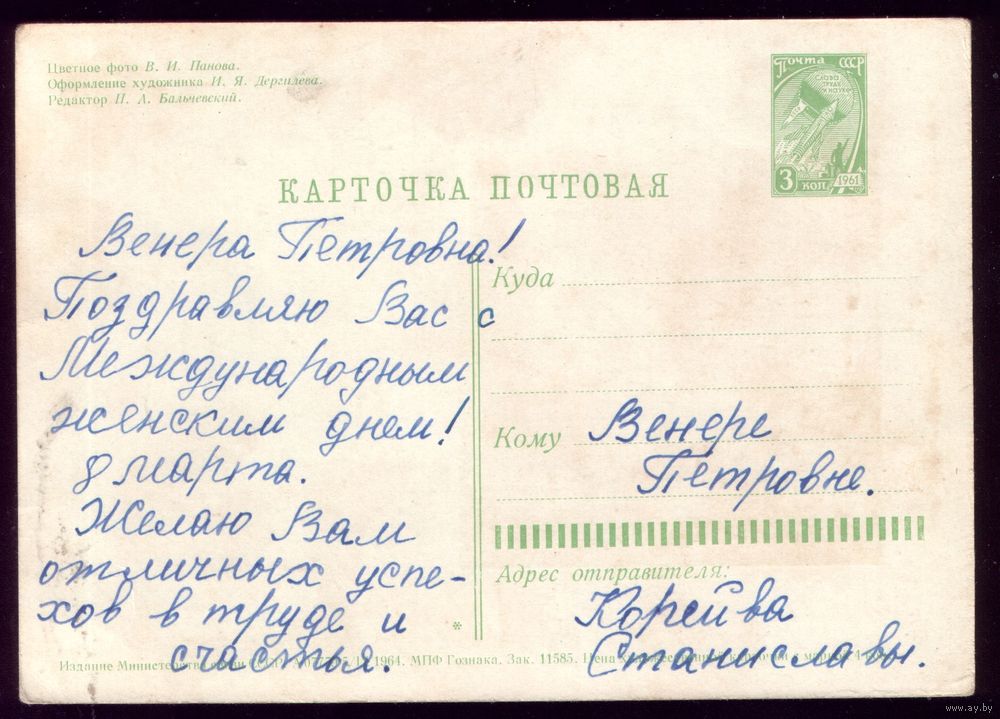 Цветное фото В. И. Панова.
Оформление художника И. Я. Дергилева.
Редактор П. А. Бальчевский.
Почта СССР
СЛАВА
ТРУДУ
И НАУКЕ
3 КОП
1961
КАРТОЧКА ПОЧТОВАЯ
Венера Петровна!
Поздравляю Вас с
Международным
женским днем!
8 марта.
Желаю Вам
отличных успе-
хов в труде и
счастья.
Куда
Кому Венере
Петровне.
Адрес отправителя:
Корейва
Станиславы.
*
Издание Министерства связи 1964. МПФ Гознака. Зак. 11585. Цена
www.ay.by